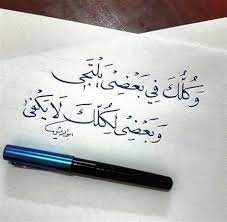 وَكُلُّكَ فِي بَعْضِي يَلْتَجِي
وَبَعْضِي لِكُلِّكَ لَا يَكْفِي